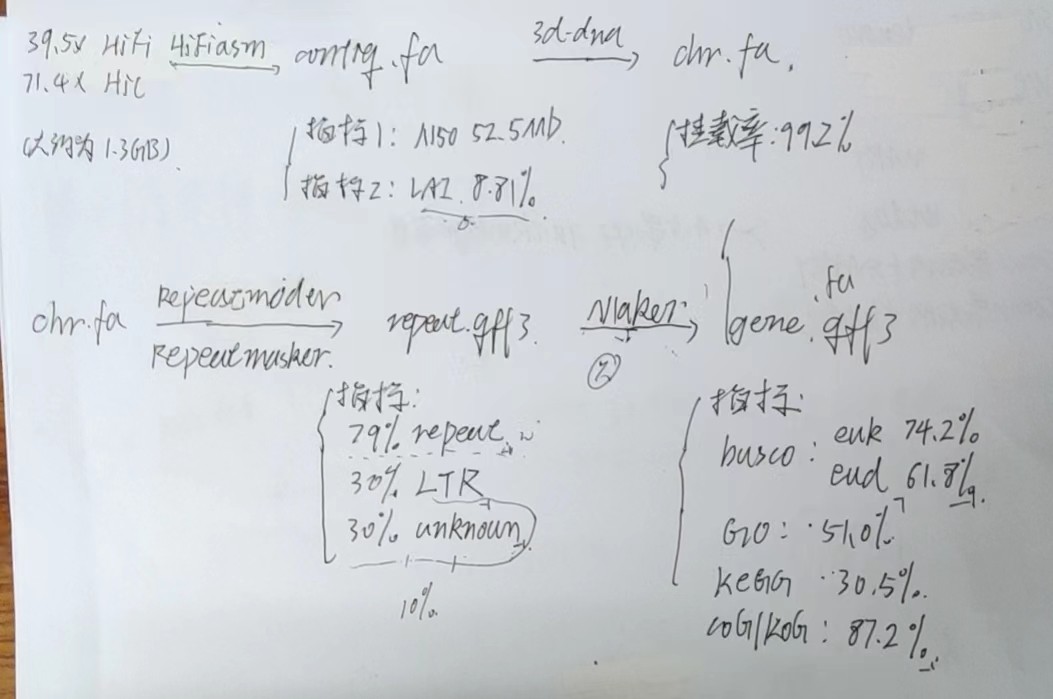 39.5x HiFi Hifiasm contig.fa 3d-dna chr.fa.
71.4x HiC
(大约为 1.3GB)
指标1: N50 52.5Mb.
指标2: LAI 8.81%
挂载率:99.2%
chr.fa Repeatmoder repeat.gff3. Maker gene .fa
.gff3
Repeatmasker.
②
指标:
79% repeat
30% LTR
30% unknown
10%
指标:
busco: euk 74.2%
eud 61.8%
GO: 51.0%
KEGG 30.5%.
COG/KOG: 87.2%